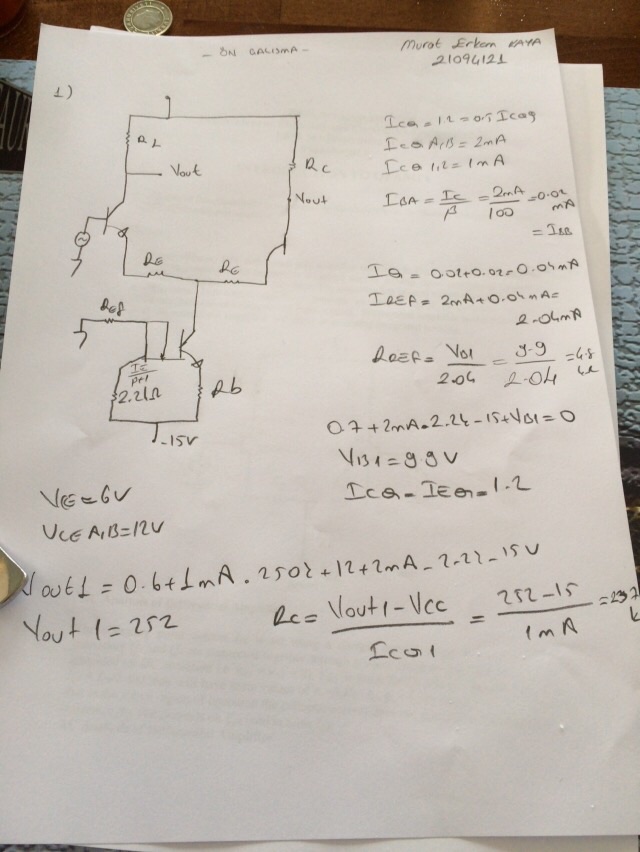 - ÖN ÇALIŞMA -
Murat Erkam KAYA
21094121
1)
RL
Vout
RC
Vout
RE
RE
Ref
IC
β+1
2.2kΩ
Rb
-15V
ICQ = 1.2 = 0.5 ICQ9
ICQ A,B = 2mA
ICQ 1,2 = 1mA
IBA = IC/β = 2mA/100 = 0.02 mA
= IBB
IQ = 0.02+0.02=0.04mA
IREF = 2mA+0.04mA=
2.04mA
RREF = VB1/2.04 = 9.9/2.04 = 4.8 kΩ
0.7+2mA.2.2k-15+VB1=0
VB1=9.9V
ICQ=IEQ=1.2
VCE=6V
VCE A,B=12V
Vout1 = 0.6+1mA.250k+12+2mA-2.2k-15V
Vout 1=252
RC = Vout1-VCC/ICQ1 = 252-15/1mA = 237 k